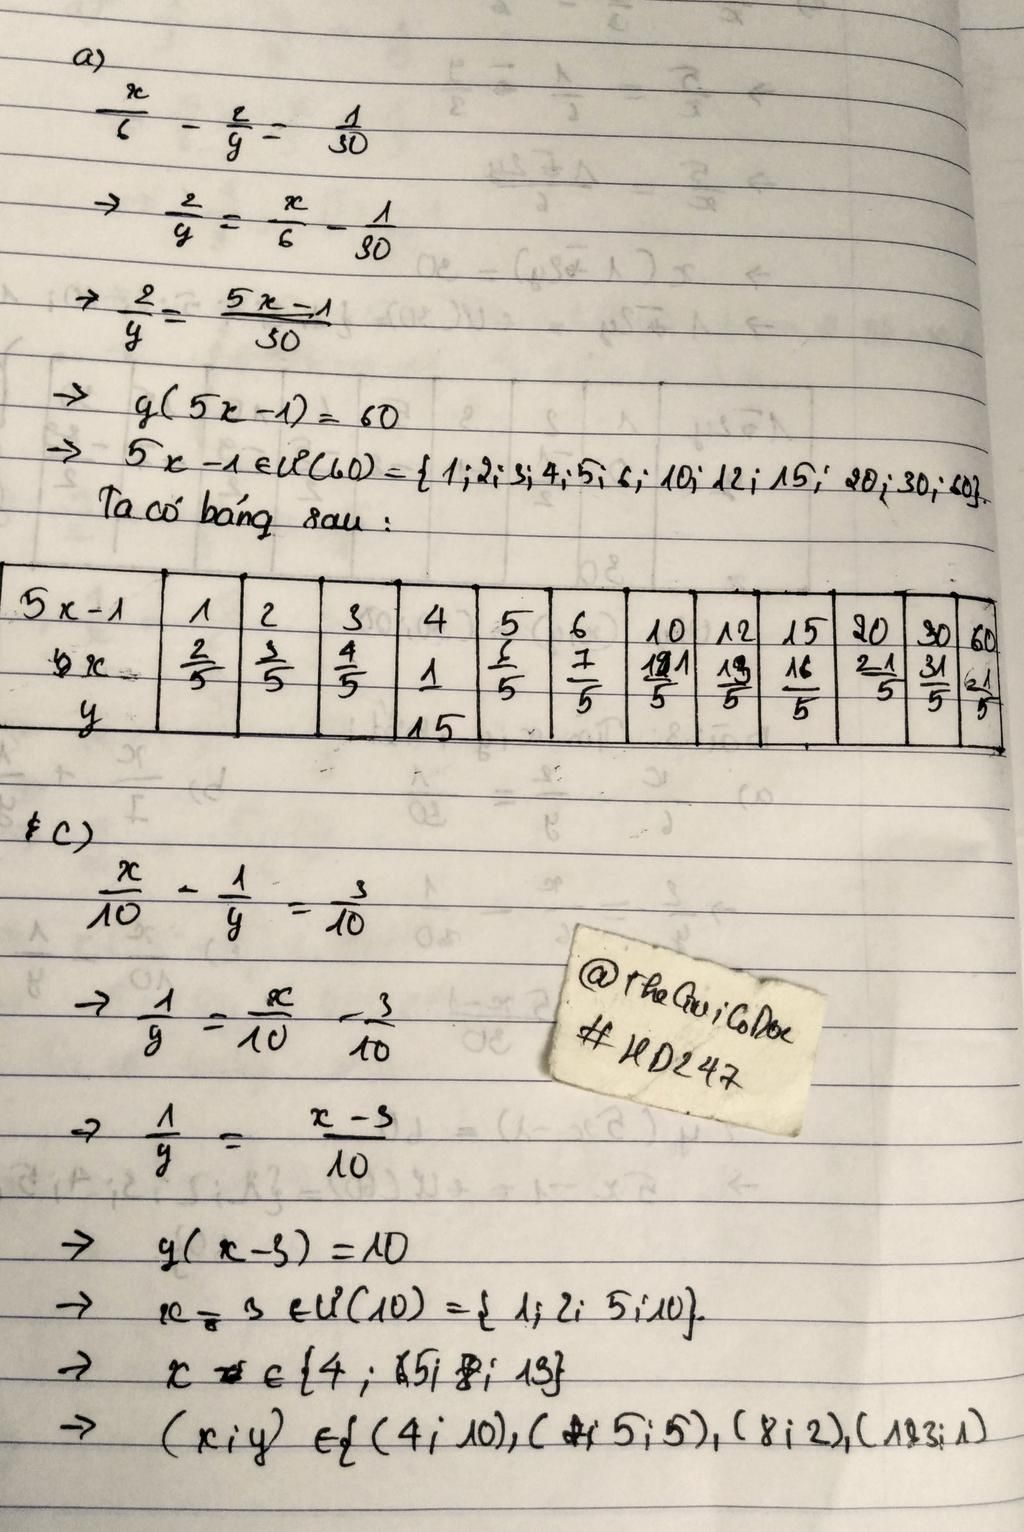 a)
x/6 - 2/y = 1/30
→ 2/y = x/6 - 1/30
→ 2/y = (5x-1)/30
→ y(5x-1) = 60
→ 5x-1 ∈ Ư(60) = {1;2;3;4;5;6;10;12;15;20;30;60}.
Ta có bảng sau:
5x-1 1 2 3 4 5 6 10 12 15 20 30 60
x 2/5 3/5 4/5 1 6/5 7/5 11/5 13/5 16/5 21/5 31/5 21/5
y 15
c)
x/10 - 1/y = 3/10
→ 1/y = x/10 - 3/10
→ 1/y = (x-3)/10
@TheGuiCoDoc
# HD247
→ y(x-3) = 10
→ x-3 ∈ Ư(10) = {1;2;5;10}.
→ x ∈ {4; 5; 8; 13}
→ (x;y) ∈ {(4;10),(5;5),(8;2),(13;1)